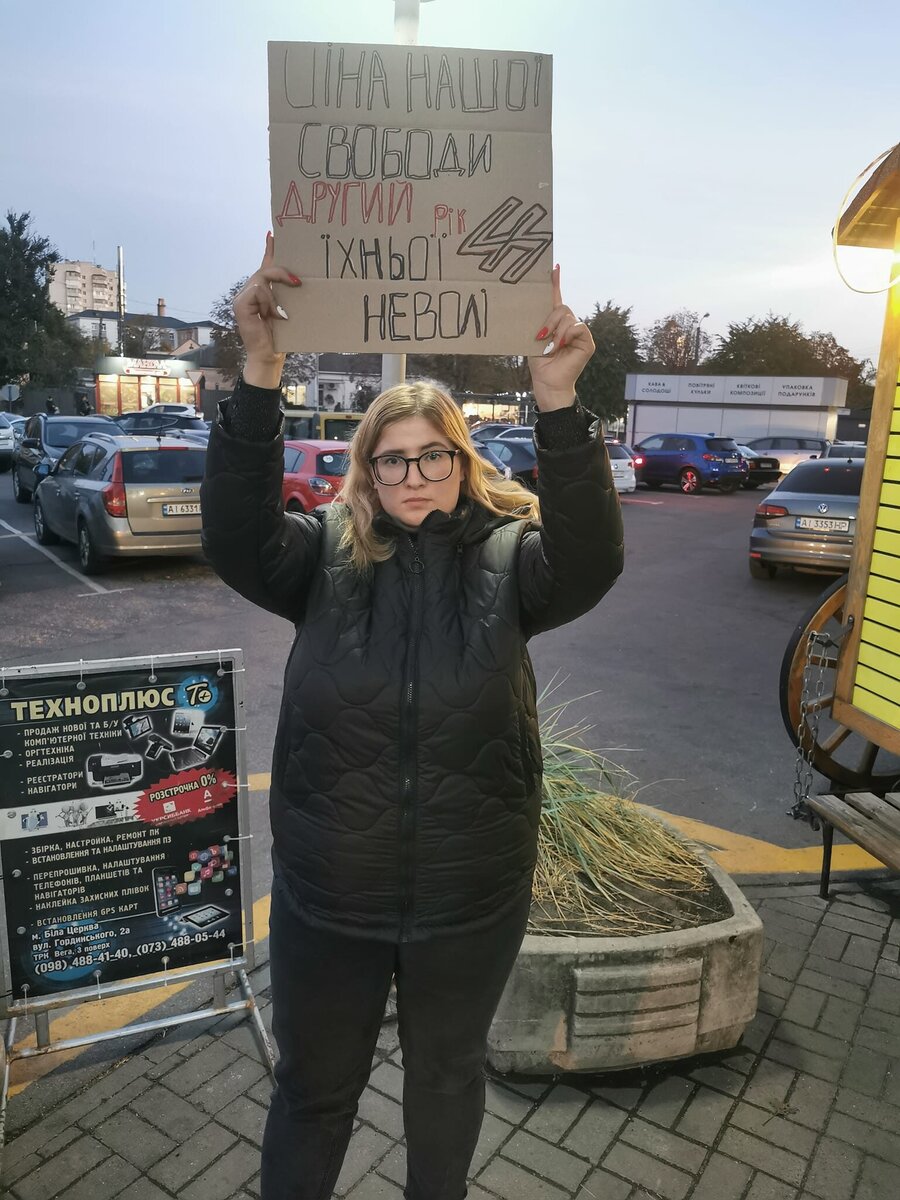 ЦІНА НАШОЇ
СВОБОДИ
ДРУГИЙ РІК
ЇХНЬОЇ
НЕВОЛІ
КАВА В СОЛОДОЩІ
ПОВІТРЯНІ КУЛЬКИ
КВІТКОВІ КОМПОЗИЦІЇ
УПАКОВКА ПОДАРУНКІВ
AI 6331
AI 3353 HP
ТЕХНОПЛЮС
- ПРОДАЖ НОВОЇ ТА Б/У
КОМП'ЮТЕРНОЇ ТЕХНІКИ
- ОРГТЕХНІКА
- РЕАЛІЗАЦІЯ
- РЕЄСТРАТОРИ
- НАВІГАТОРИ
РОЗСТРОЧКА 0%
УКРСИББАНК
- ЗБІРКА, НАСТРОЙКА, РЕМОНТ ПК
- ВСТАНОВЛЕННЯ ТА НАЛАШТУВАННЯ ПЗ
- ПЕРЕПРОШИВКА, НАЛАШТУВАННЯ
ТЕЛЕФОНІВ, ПЛАНШЕТІВ ТА
НАВІГАТОРІВ
- НАКЛЕЙКА ЗАХИСНИХ ПЛІВОК
- ВСТАНОВЛЕННЯ GPS КАРТ
м. Біла Церква
вул. Гординського, 2а
ТРК Вега, 3 поверх
(098) 488-41-40, (073) 488-05-44